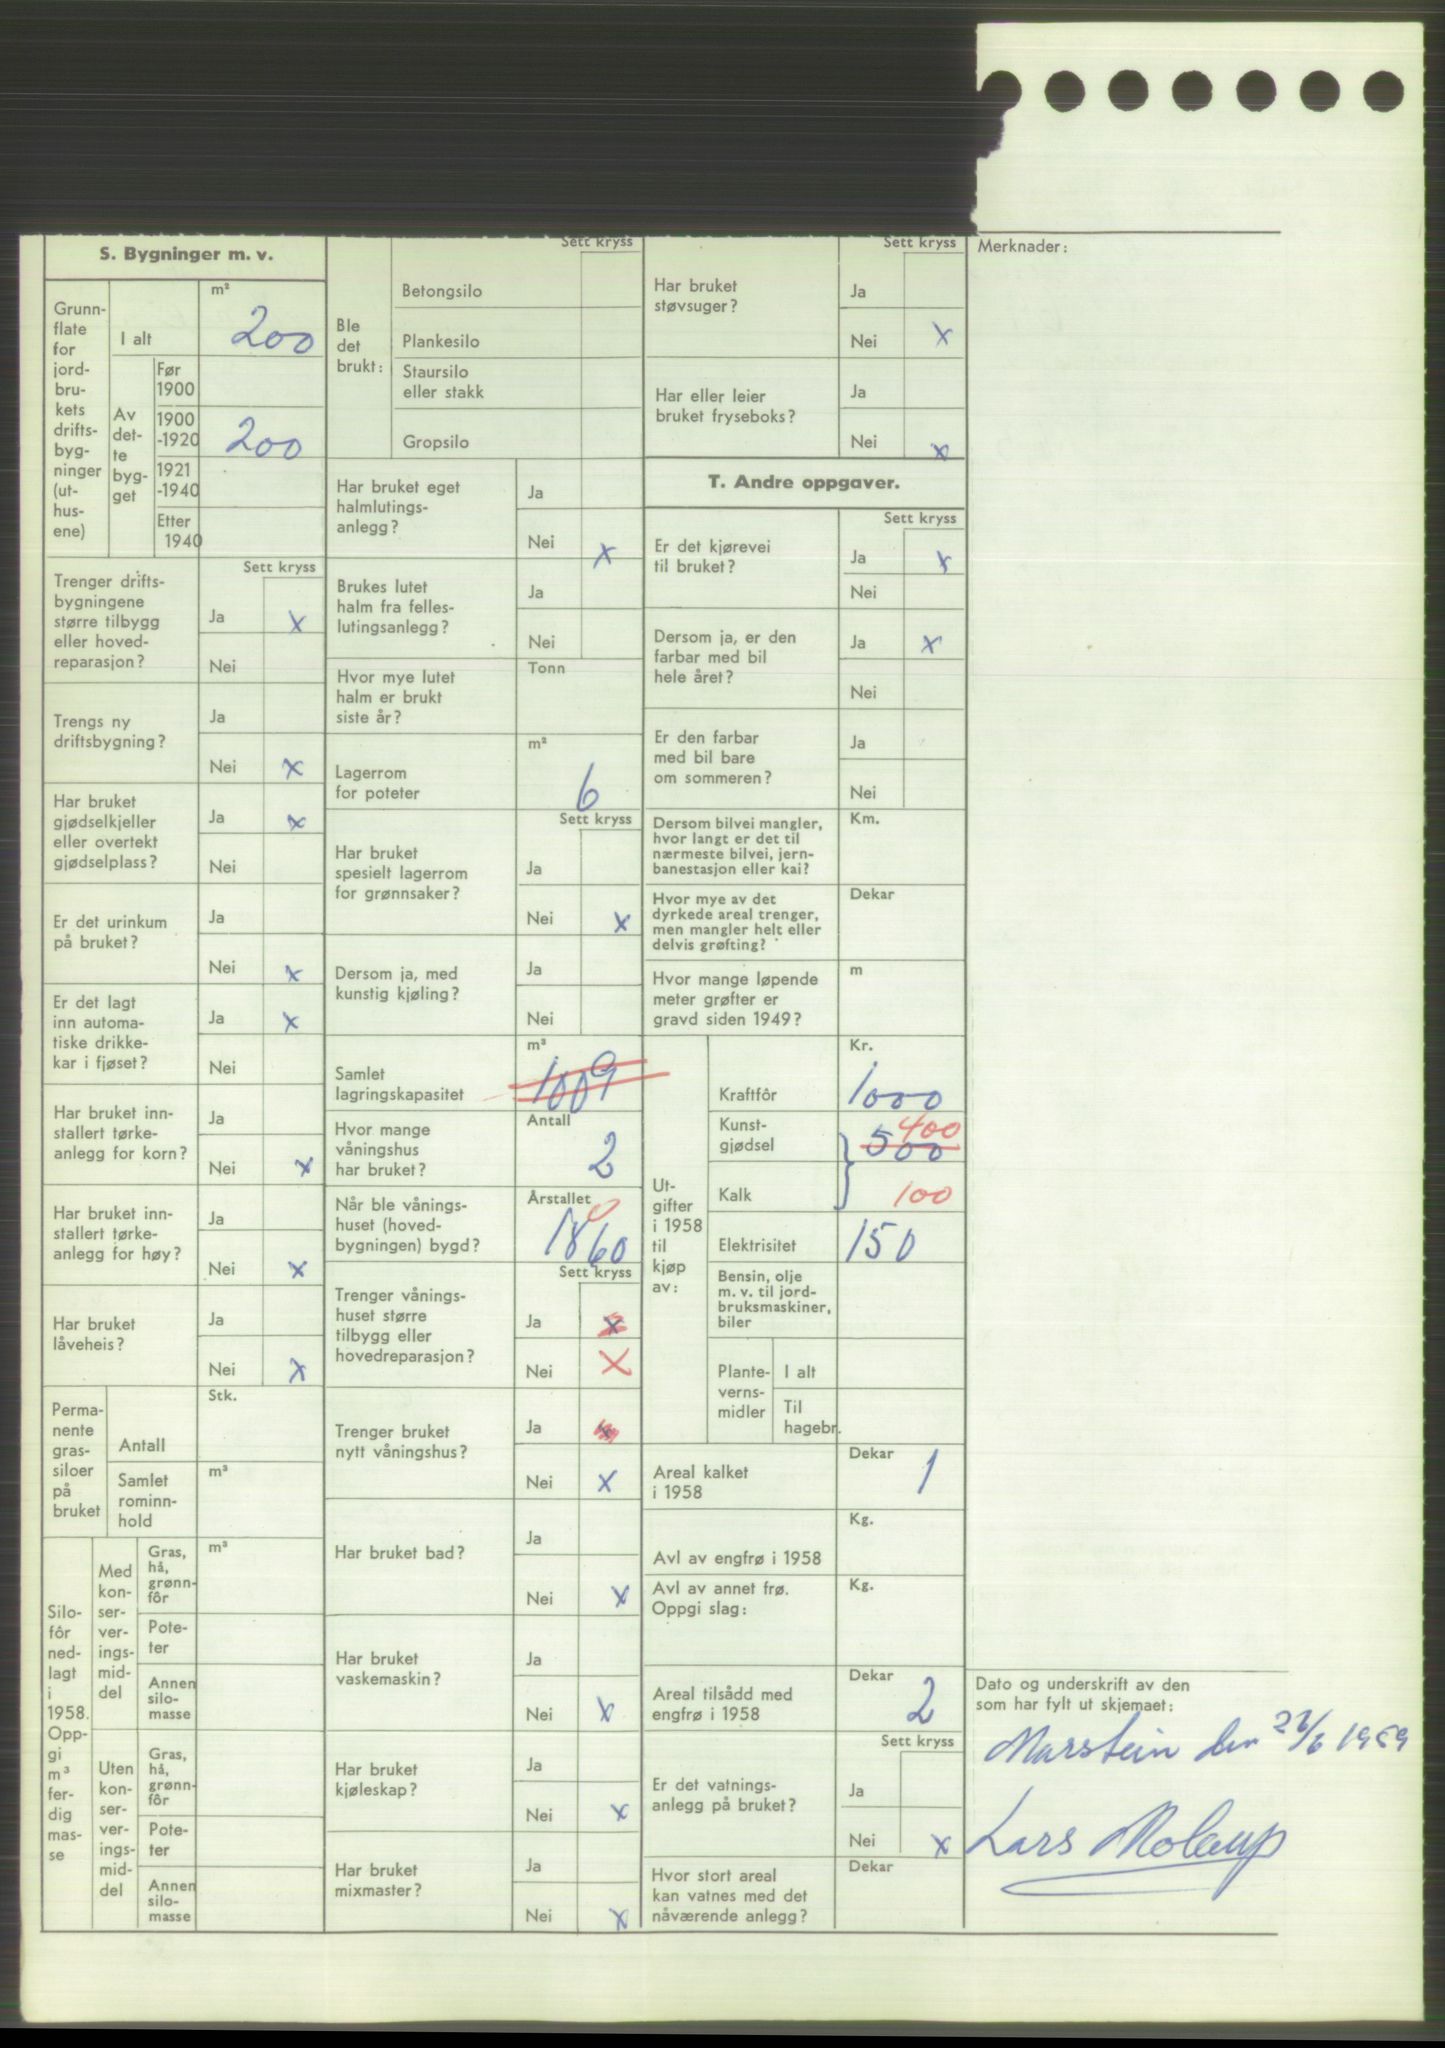 S. Bygninger m. v.
Grunn-
flate
for
jord-
bru-
kets
drifts-
byg-
ninger
(ut-
hus-
ene)
I alt
m²
200
Av
det-
te
byg-
get
Før
1900
1900
-1920
200
1921
-1940
Etter
1940
Sett kryss
Trenger drifts-
bygningene
større tilbygg
eller hoved-
reparasjon?
Ja x
Nei
Trengs ny
driftsbygning?
Ja
Nei x
Har bruket
gjødselkjeller
eller overtekt
gjødselplass?
Ja x
Nei
Er det urinkum
på bruket?
Ja
Nei x
Er det lagt
inn automa-
tiske drikke-
kar i fjøset?
Ja x
Nei
Har bruket inn-
stallert tørke-
anlegg for korn?
Ja
Nei x
Har bruket inn-
stallert tørke-
anlegg for høy?
Ja
Nei x
Har bruket
låveheis?
Ja
Nei x
Perma-
nente
gras-
siloer
på
bruket
Stk.
Antall
m³
Samlet
rominn-
hold
Silo-
fôr
ned-
lagt
i
1958.
Opp-
gi
m³
fer-
dig
mas-
se
Med
kon-
ser-
ver-
ings-
mid-
del
m³
Gras,
hå,
grønn-
fôr
Pote-
ter
Annen
silo-
masse
Uten
kon-
ser-
ver-
ings-
mid-
del
Gras,
hå,
grønn-
fôr
Pote-
ter
Annen
silo-
masse
Sett kryss
Ble
det
brukt:
Betongsilo
Plankesilo
Staursilo
eller stakk
Gropsilo
Har bruket eget
halmlutings-
anlegg?
Ja
Nei x
Brukes lutet
halm fra felles-
lutingsanlegg?
Ja
Nei
Hvor mye lutet
halm er brukt
siste år?
Tonn
Lagerrom
for poteter
m²
6
Sett kryss
Har bruket
spesielt lagerrom
for grønnsaker?
Ja
Nei x
Dersom ja, med
kunstig kjøling?
Ja
Nei
Samlet
lagringskapasitet
m³
1009
Hvor mange
våningshus
har bruket?
Antall
2
Når ble vånings-
huset (hoved-
bygningen) bygd?
Årstallet
0
1860
Sett kryss
Trenger vånings-
huset større
tilbygg eller
hovedreparasjon?
Ja x
Nei X
Trenger bruket
nytt våningshus?
Ja x
Nei x
Har bruket bad?
Ja
Nei x
Har bruket
vaskemaskin?
Ja
Nei x
Har bruket
kjøleskap?
Ja
Nei x
Har bruket
mixmaster?
Ja
Nei x
Sett kryss
Har bruket
støvsuger?
Ja
Nei x
Har eller leier
bruket fryseboks?
Ja
Nei x
T. Andre oppgaver.
Sett kryss
Er det kjørevei
til bruket?
Ja x
Nei
Dersom ja, er den
farbar med bil
hele året?
Ja x
Nei
Er den farbar
med bil bare
om sommeren?
Ja
Nei
Dersom bilvei mangler,
hvor langt er det til
nærmeste bilvei, jern-
banestasjon eller kai?
Km.
Hvor mye av det
dyrkede areal trenger,
men mangler helt eller
delvis grøfting?
Dekar
Hvor mange løpende
meter grøfter er
gravd siden 1949?
m
Ut-
gifter
i 1958
til
kjøp
av:
Kr.
Kraftfôr 1000
Kunst-
gjødsel
400
500
Kalk 100
Elektrisitet 150
Bensin, olje
m. v. til jord-
bruksmaskiner,
biler
Plante-
verns-
midler
I alt
Til
hagebr.
Areal kalket
i 1958
Dekar
1
Kg.
Avl av engfrø i 1958
Avl av annet frø.
Oppgi slag:
Kg.
Areal tilsådd med
engfrø i 1958
Dekar
2
Sett kryss
Er det vatnings-
anlegg på bruket?
Ja
Nei x
Hvor stort areal
kan vatnes med det
nåværende anlegg?
Dekar
Merknader:
Dato og underskrift av den
som har fylt ut skjemaet:
Marstein den /6 1959
Lars